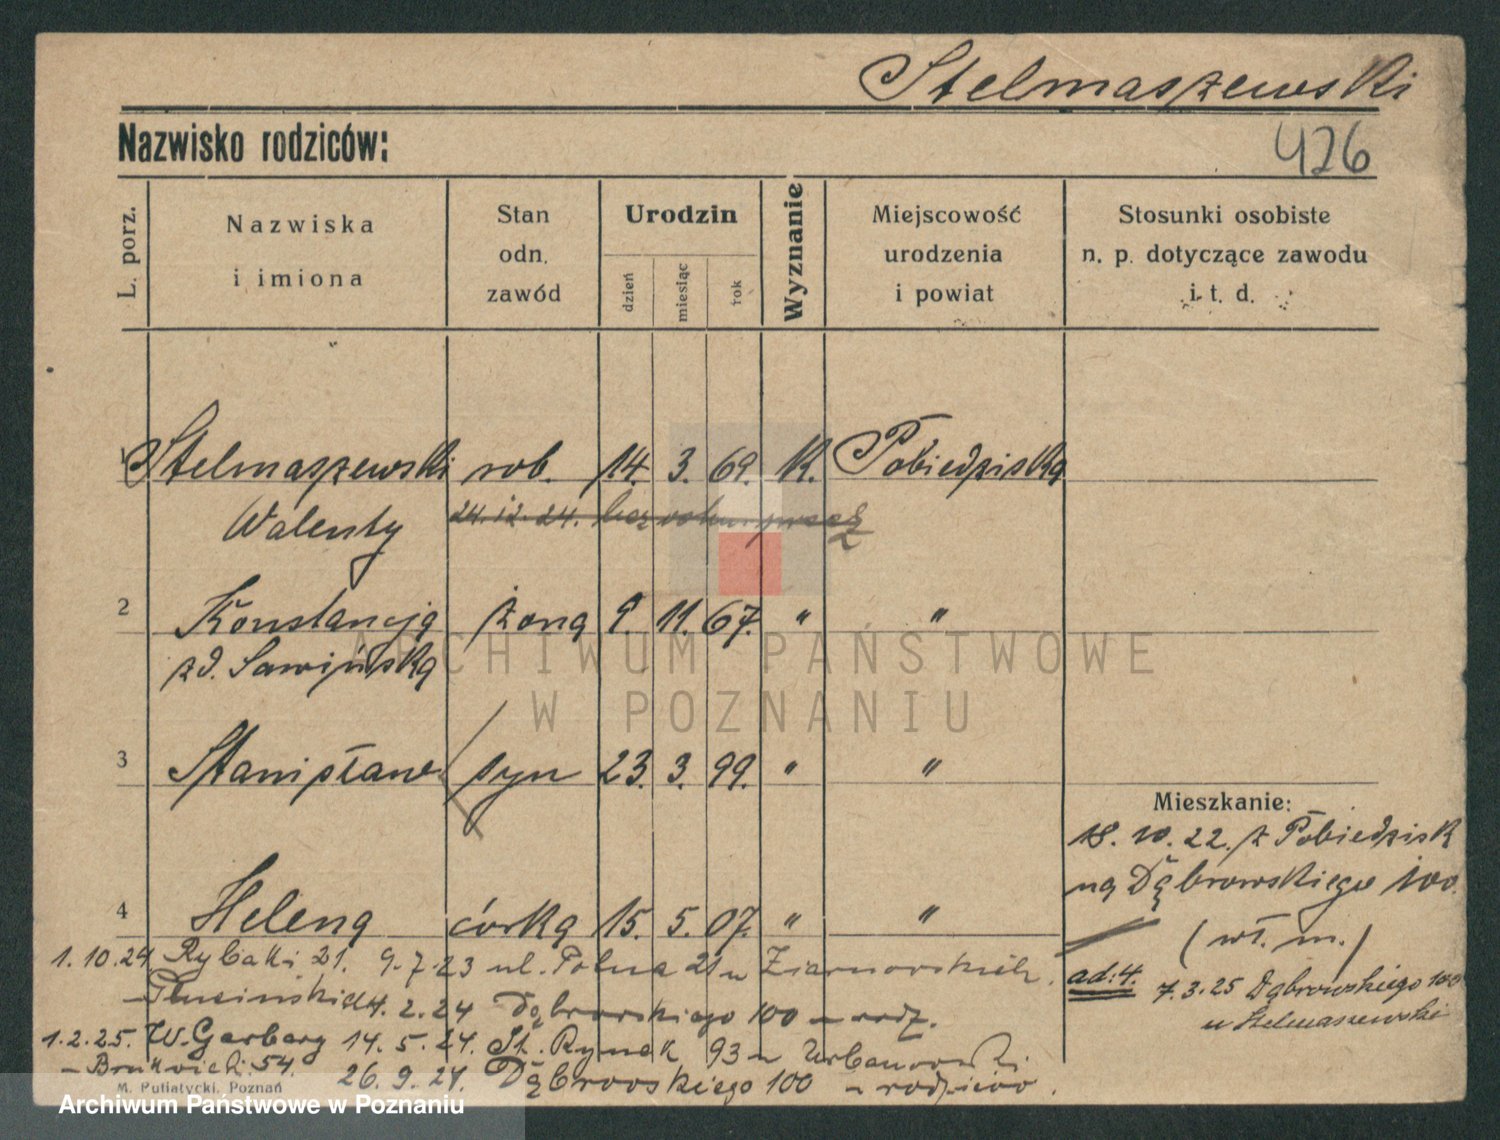 Stelmaszewski
Nazwisko rodziców:
426
L. porz.
Nazwiska
i imiona
Stan
odn.
zawód
Urodzin
dzień
miesiąc
rok
Wyznanie
Miejscowość
urodzenia
i powiat
Stosunki osobiste
n. p. dotyczące zawodu
i. t. d.
1 Stelmaszewski rob. 14. 3. 69. K. Pobiedziska
Walenty 24.12.24. bez
2 Konstancja żona 9. 11. 67. " "
zd. Sawińska
3 Stanisław syn 23. 3. 99. " "
Mieszkanie:
18. 10. 22. z Pobiedzisk
na Dąbrowskiego 100.
(wł. m.)
4 Helena córka 15. 5. 07. " "
1.10.24 Rybaki 21. 9.7.23 ul. Polna 21 u
4.2.24 Dąbrowskiego 100 - rodz.
ad:4. 7.3.25 Dąbrowskiego 100
u Stelmaszewski
1.2.25. W. Garbary 14.5.24. St. Rynek 93 u Urbanowski
54. 26.9.24. Dąbrowskiego 100 - rodziców.
M. Putiatycki, Poznań
ARCHIWUM PAŃSTWOWE
W POZNANIU
Archiwum Państwowe w Poznaniu